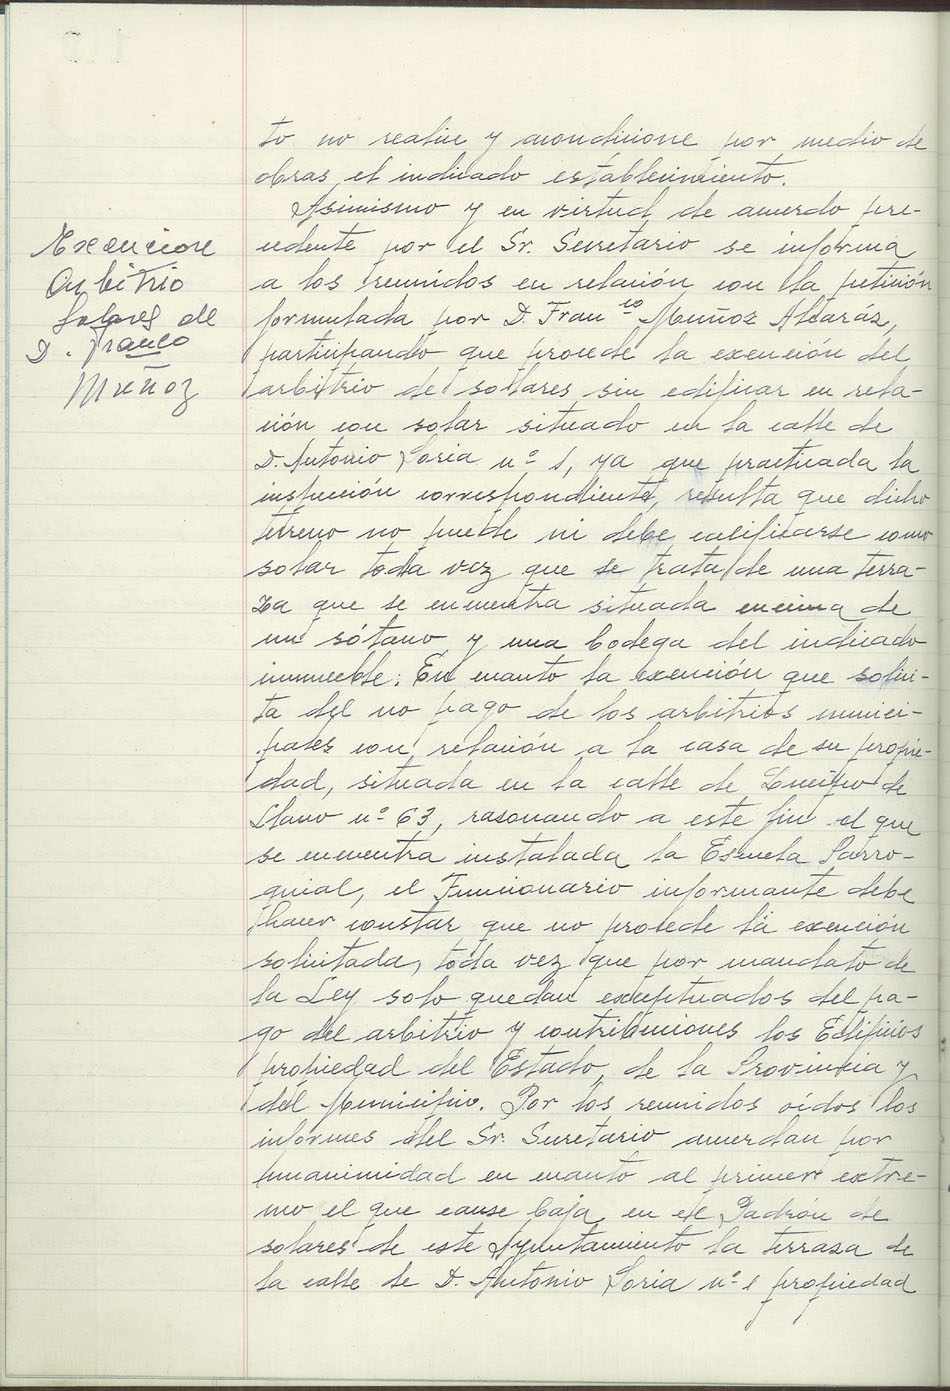 to no realice y acondicione por medio de
obras el indicado establecimiento.
Asimismo y en virtud de acuerdo pre-
cedente por el Sr. Secretario se informa
a los reunidos en relación con la petición
formulada por D. Franco Muñoz Alcaráz,
participando que procede la exención del
arbitrio de solares sin edificar en rela-
ción con solar situado en la calle de
D. Antonio Soria nº 1, ya que practicada la
inspección correspondiente, resulta que dicho
terreno no puede ni debe calificarse como
solar toda vez que se trata de una terra-
za que se encuentra situada encima de
un sótano y una bodega del indicado
inmueble. En cuanto la exención que solici-
ta del no pago de los arbitrios munici-
pales con relación a la casa de su propie-
dad, situada en la calle de Queipo de
Llano nº 63, rasonando a este fin el que
se encuentra instalada la Escuela Parro-
quial, el Funcionario informante debe
hacer constar que no procede la exención
solicitada, toda vez que por mandato de
la Ley solo quedan exceptuados del pa-
go del arbitrio y contribuciones los Edificios
propiedad del Estado, de la Provincia y
del Municipio. Por los reunidos oidos los
informes del Sr. Secretario acuerdan por
unanimidad en cuanto al primer extre-
mo el que cause baja en el Padrón de
solares de este Ayuntamiento la terraza de
la calle de D. Antonio Soria nº 1 propiedad
Exencion
Arbitrio
Solares de
D. Franco
Muñoz